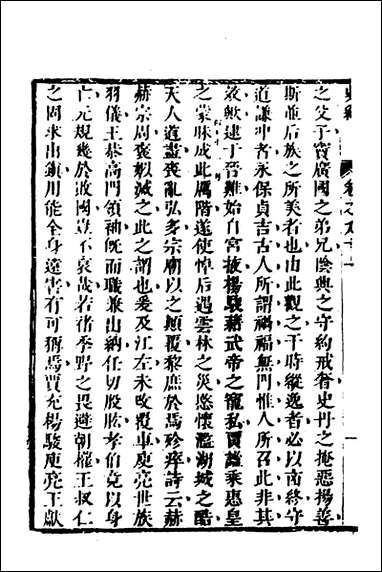 之父子竇廣國之弟兄陰興之守約戒奢史丹之掩惡揚善
斯並后族之所美者也由此觀之干時縱逸者必以凶終守
道謙冲者永保貞吉古人所謂禍福無門惟人所召此非其
效歟逮于晉難始自宮掖楊駿藉武帝之寵私賈謐乘惠皇
之蒙昧成此厲階遂使悼后遇雲林之災愍懷濫湖城之酷
天人道盡喪亂弘多宗廟以之顛覆黎庶於焉殄瘁詩云赫
赫宗周褒姒滅之此之謂也爰及江左未改覆車庾亮世族
羽儀王恭高門領袖旣而職兼出納任切股肱孝伯竟以身
亡元規幾於敗國豈不哀哉若褚季野之畏避朝權王叔仁
之固求出鎮用能全身遠害有可稱焉賈充楊駿庾亮王獻